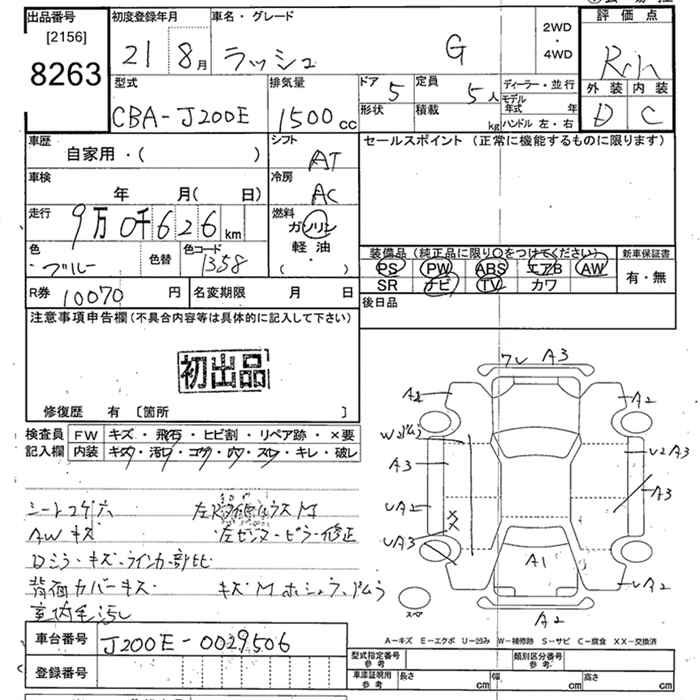 出品番号
[2156]
8263
初度登録年月
21 8月
車名・グレード
ラッシュ G
2WD
・
4WD
評価点
外装 内装
D C
型式
CBA-J200E
排気量
1500cc
ドア 5
定員 5人
形状
積載 kg
ディーラー・並行
モデル年式 年
ハンドル 左・右
車歴
自家用・( )
シフト
AT
セールスポイント (正常に機能するものに限ります)
車検
年 月( 日)
冷房
AC
走行
9万0千626km
燃料
ガソリン
軽油
( )
色
ブルー
色替
色コード
1358
装備品 (純正品に限り○をつけてください)
PS PW ABS エアB AW
SR ナビ TV カワ
新車保証書
有・無
R券 10070円
名変期限 月 日
後日品
注意事項申告欄(不具合内容等は具体的に記入して下さい)
初出品
修復歴 有 [箇所 ]
検査員
記入欄
FW キズ・飛石・ヒビ割・リペア跡・×要
内装 キズ・汚れ・コゲ・穴・スレ・キレ・破レ
シートコゲ穴
AWキズ
左センターピラー修正
背面カバーキズ
室内毛汚し
A3
A2
A2
A3
UA2
UA3
U2A3
A3
A1
UA2
A2
スペア
車台番号 J200E-0029506
登録番号
A-キズ E-エクボ U-凹み W-補修跡 S-サビ C-腐食 XX-交換済
型式指定番号
参考
類別区分番号
参考
車庫証明用
参考
長さ cm
幅 cm
高さ cm